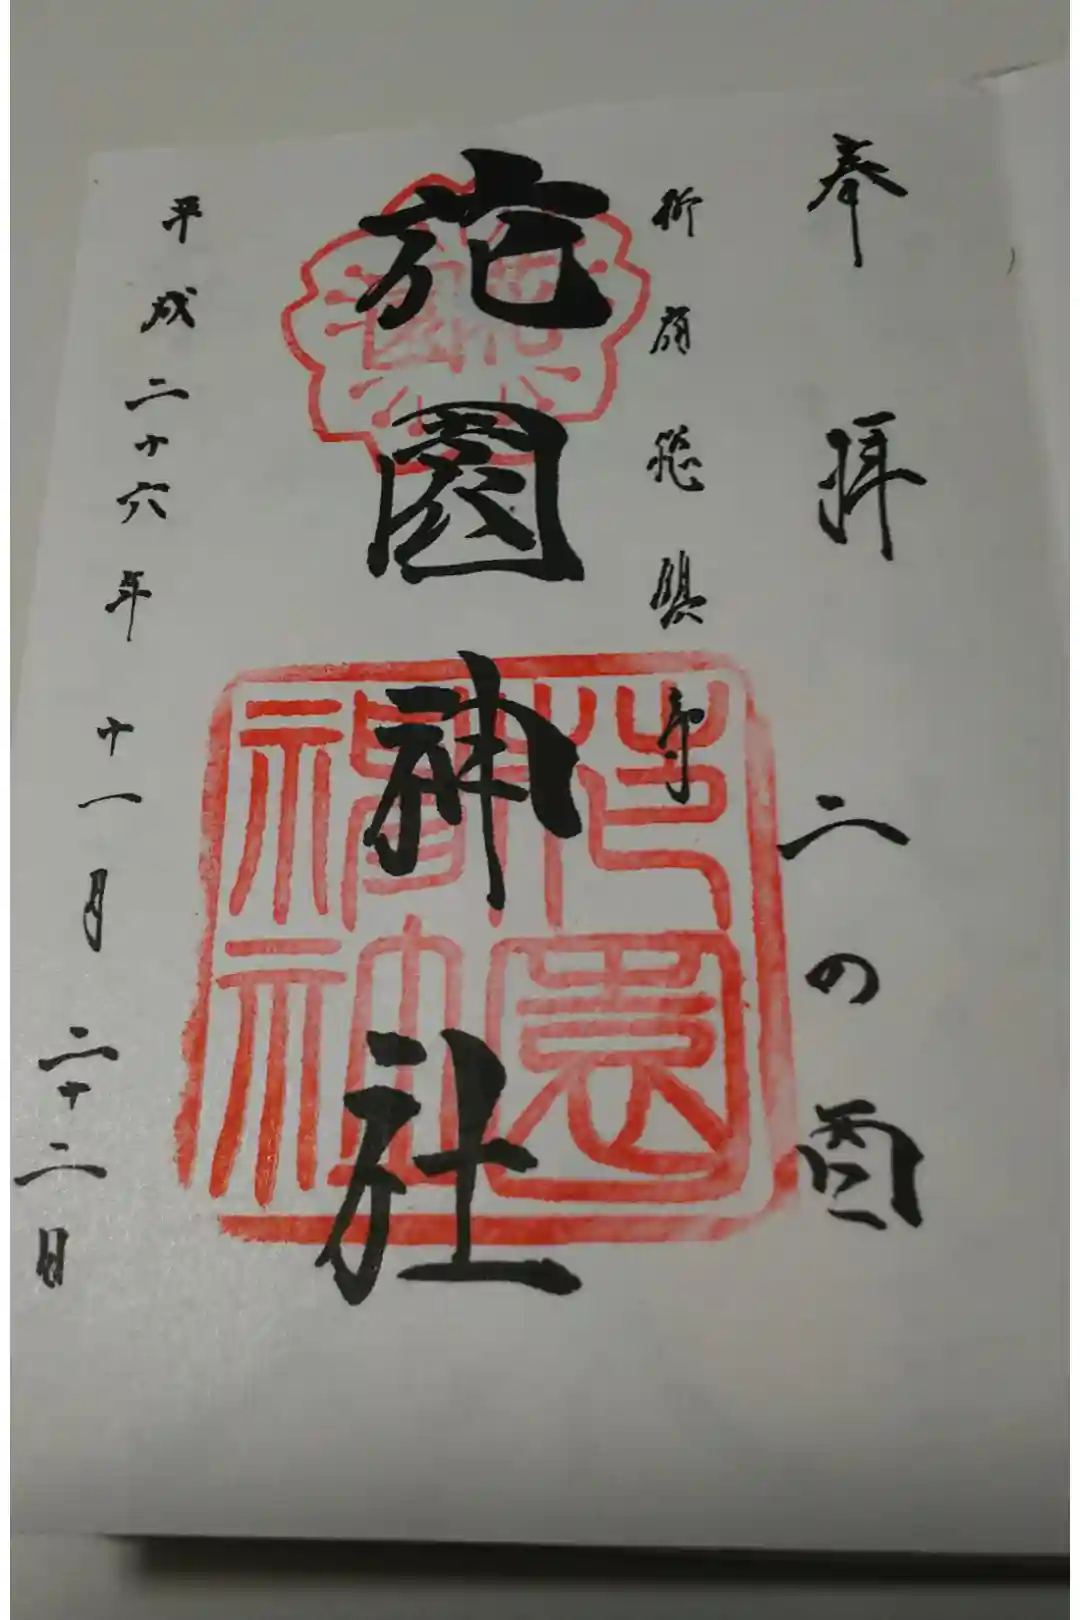 奉拝 二の酉
新宿総鎮守
花園神社
平成二十六年 十一月 二十二日
花園
花園
神社